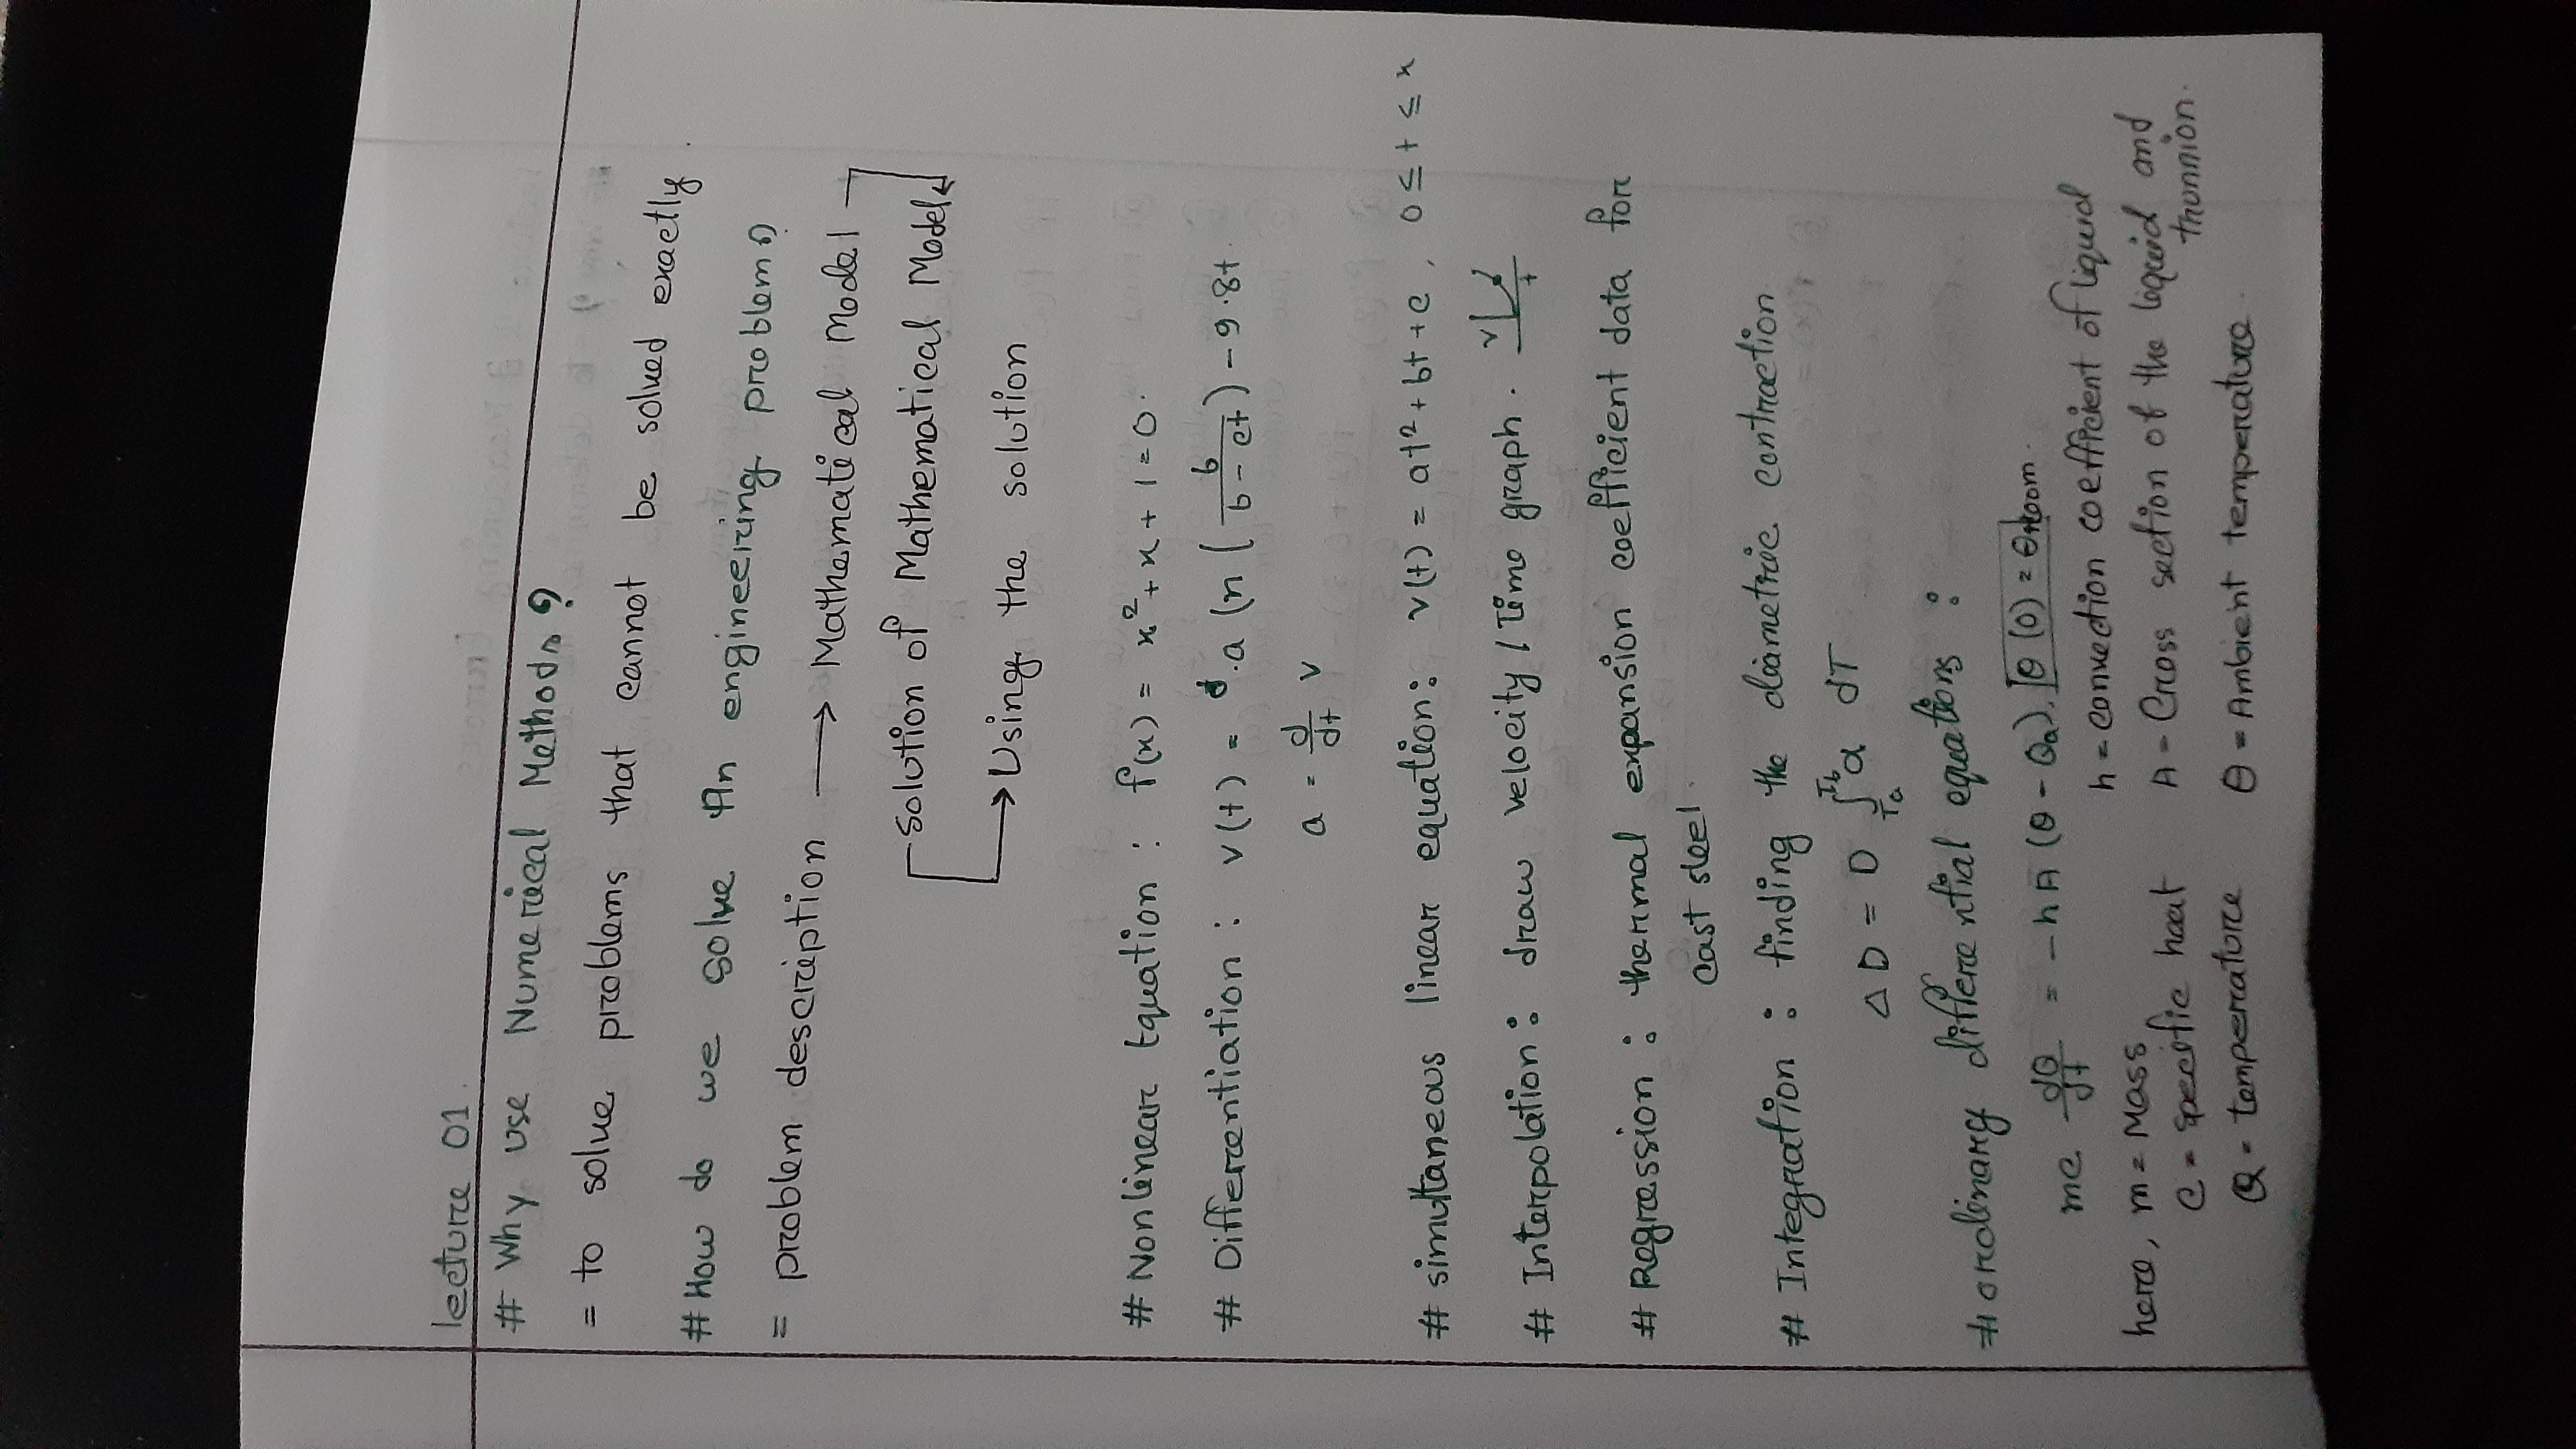 lecture 01.
# Why use Numerical Methods?
= to solve problems that cannot be solved exactly.
# How do we solve An engineering problem?
= problem description → Mathematical Model
Solution of Mathematical Model
→ Using the solution
# Nonlinear Equation : f(x) = x²+x+1=0.
# Differentiation : v(t) = .a ln ( b / b-ct ) - 9.8t.
a = d/dt v
# simultaneous linear equation: v(t) = at²+bt+c, 0≤t≤x
# Interpolation: draw velocity / Time graph. v t
# Regression : thermal expansion coefficient data for
cast steel.
# Integration : finding the diametric contraction
ΔD = D ∫Ta Tb α dT
# ordinary differential equations :
mc dθ/dt = -hA (θ-θa), θ(0) = θroom.
h = convection coefficient of liquid
here, m = Mass
A = Cross section of the liquid and
c = specific heat
thunnion.
Q = temperature θ = Ambient temperature.